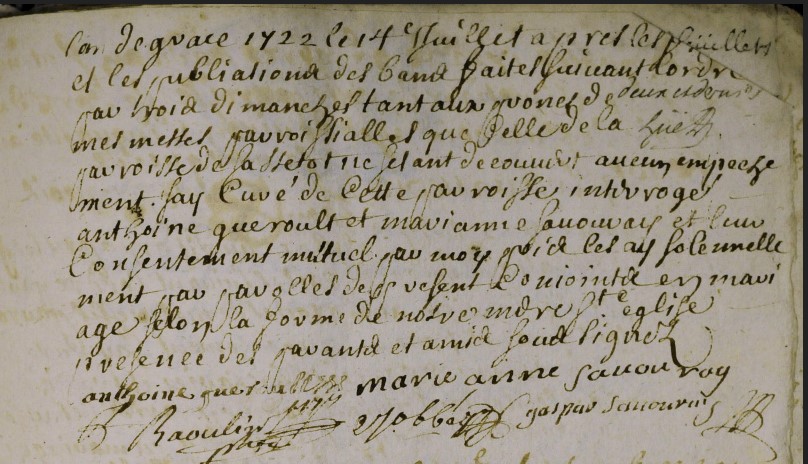 Lan de grace 1722 le 14e Juillet apres les
et les publications des bans faites suivant lordre
par trois dimanches tant aux prones de
mes messes parroissialles que Celle de la
parroisse de Sassetot ne setant decouvert aucun empeche
ment. Jay Curé de Cette parroisse interrogé
anthoine queroult et marianne sauouray et leur
Consentement mutuel par moy pris les ay solennelle
ment par parolles de present Conjoints en mari
age selon la forme de nostre mere ste eglise
presence des parants et amis sousignez
anthoine queroult marie anne sauouray
Raoulin gaspar sauouray